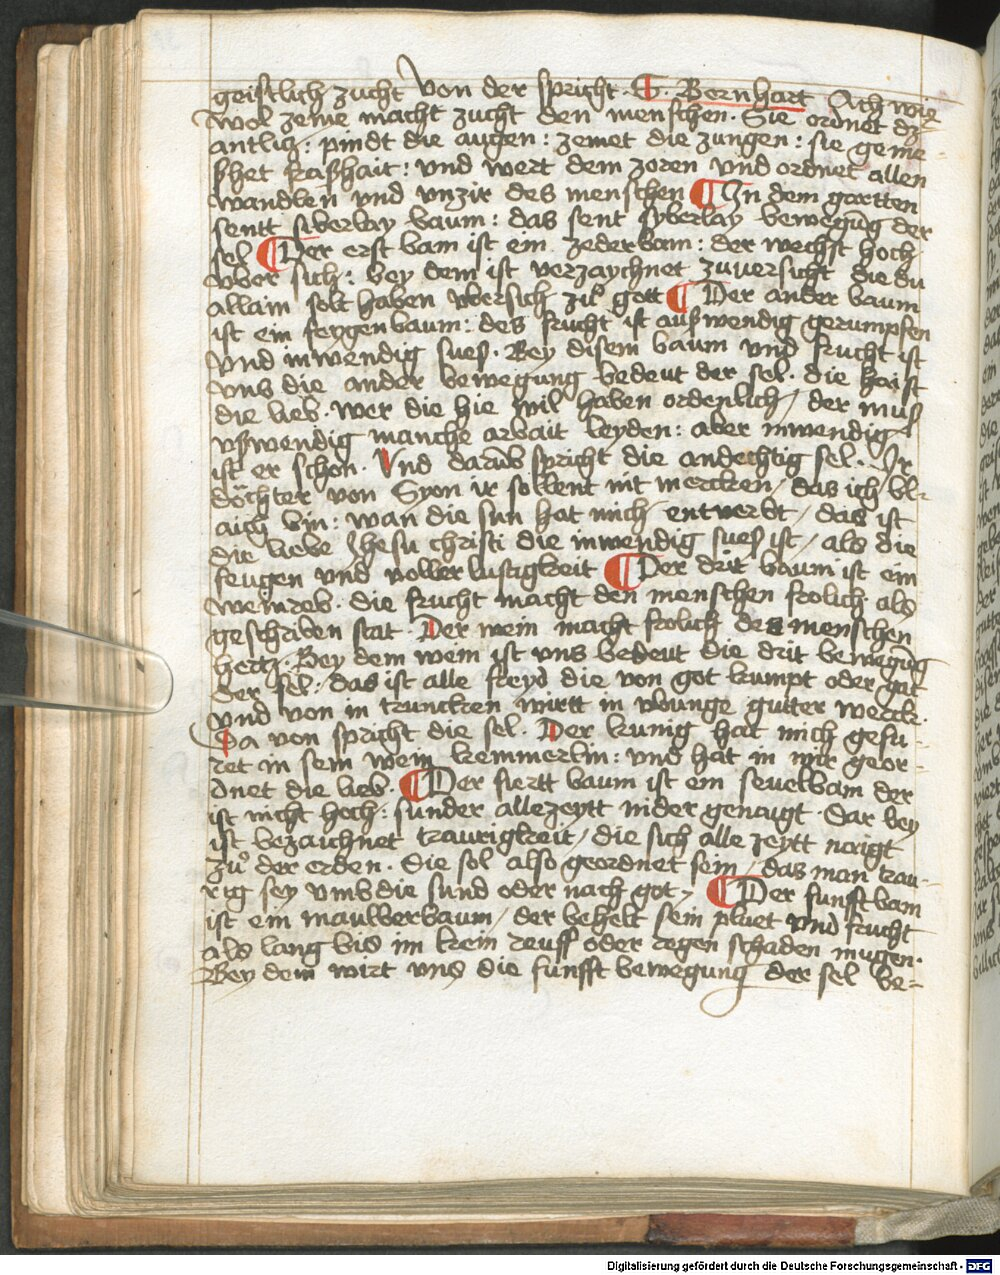 geistlich zucht von der spricht · S · Bernhart Ach wie
wol zeme macht zucht den menschen · Sie ordnet dz
antlitz : pindt die augen : zemet die zungen : sie geme=
sshet frashait : und wert dem zoren und ordnet allen
wandlen und unzir des menschen ¶ In dem gartten
sentt siberlay baum : das sent syberlay bewegūg der
sel ¶ Der erst bam ist ein zederbam : der wechst hoch
uber sich : bey dem ist verzaychnet zuversicht die du
allain solt haben ubersich zů gott ¶ Der ander baum
ist ein feygenbaum : des frucht ist auswendig gerumpfen
und inwendig sues · Bey disem baum und frucht ist
uns die ander bewegung bedeut der sel · die haist
die lieb · wer die hie wil haben ordenlich / der mus
uswendig manche arbait leyden : aber inwendig
ist er schon · Und darūb spricht die andechtig sel · Ir
döchter von Syon ir sollent nit mercken / das ich bl=
aich bin : wan die sun hat mich entverbt / das ist
die liebe Jhesu christi die inwendig sues ist / als die
feugen und voller lustigkeit ¶ Der drit baum ist ein
weinreb · die frucht macht den menschen frolich als
geschriben stat · Der wein macht frolich des menschen
hertz · Bey dem wein ist uns bedeut die drit bewegūg
der sel : das ist alle freyd die von got kumpt oder gat
und von in truncken wirtt in ubunge gutter werck ·
Da von spricht die sel · Der kunig hat mich gefu=
ret in sein wein kemmerlin : und hat in mir geor=
dnet die lieb · ¶ Der fiertt baum ist ein sevelbam der
ist nicht hoch : sunder allezeytt nider genaugt · Dar bey
ist bezaichnet traurigkeit / die sich alle zeytt naigt
zů der erden · Die sol also geordnet sein / das man trau=
rig sey umb die sund oder nach got / ¶ Der funft bam
ist ein maulberbaum / der behelt sein pluet und frucht
als lang bis im kein reuff oder regen schaden mugen ·
Bey dem wirt uns die funfft bewegung der sel be=
Digitalisierung gefördert durch die Deutsche Forschungsgemeinschaft - DFG